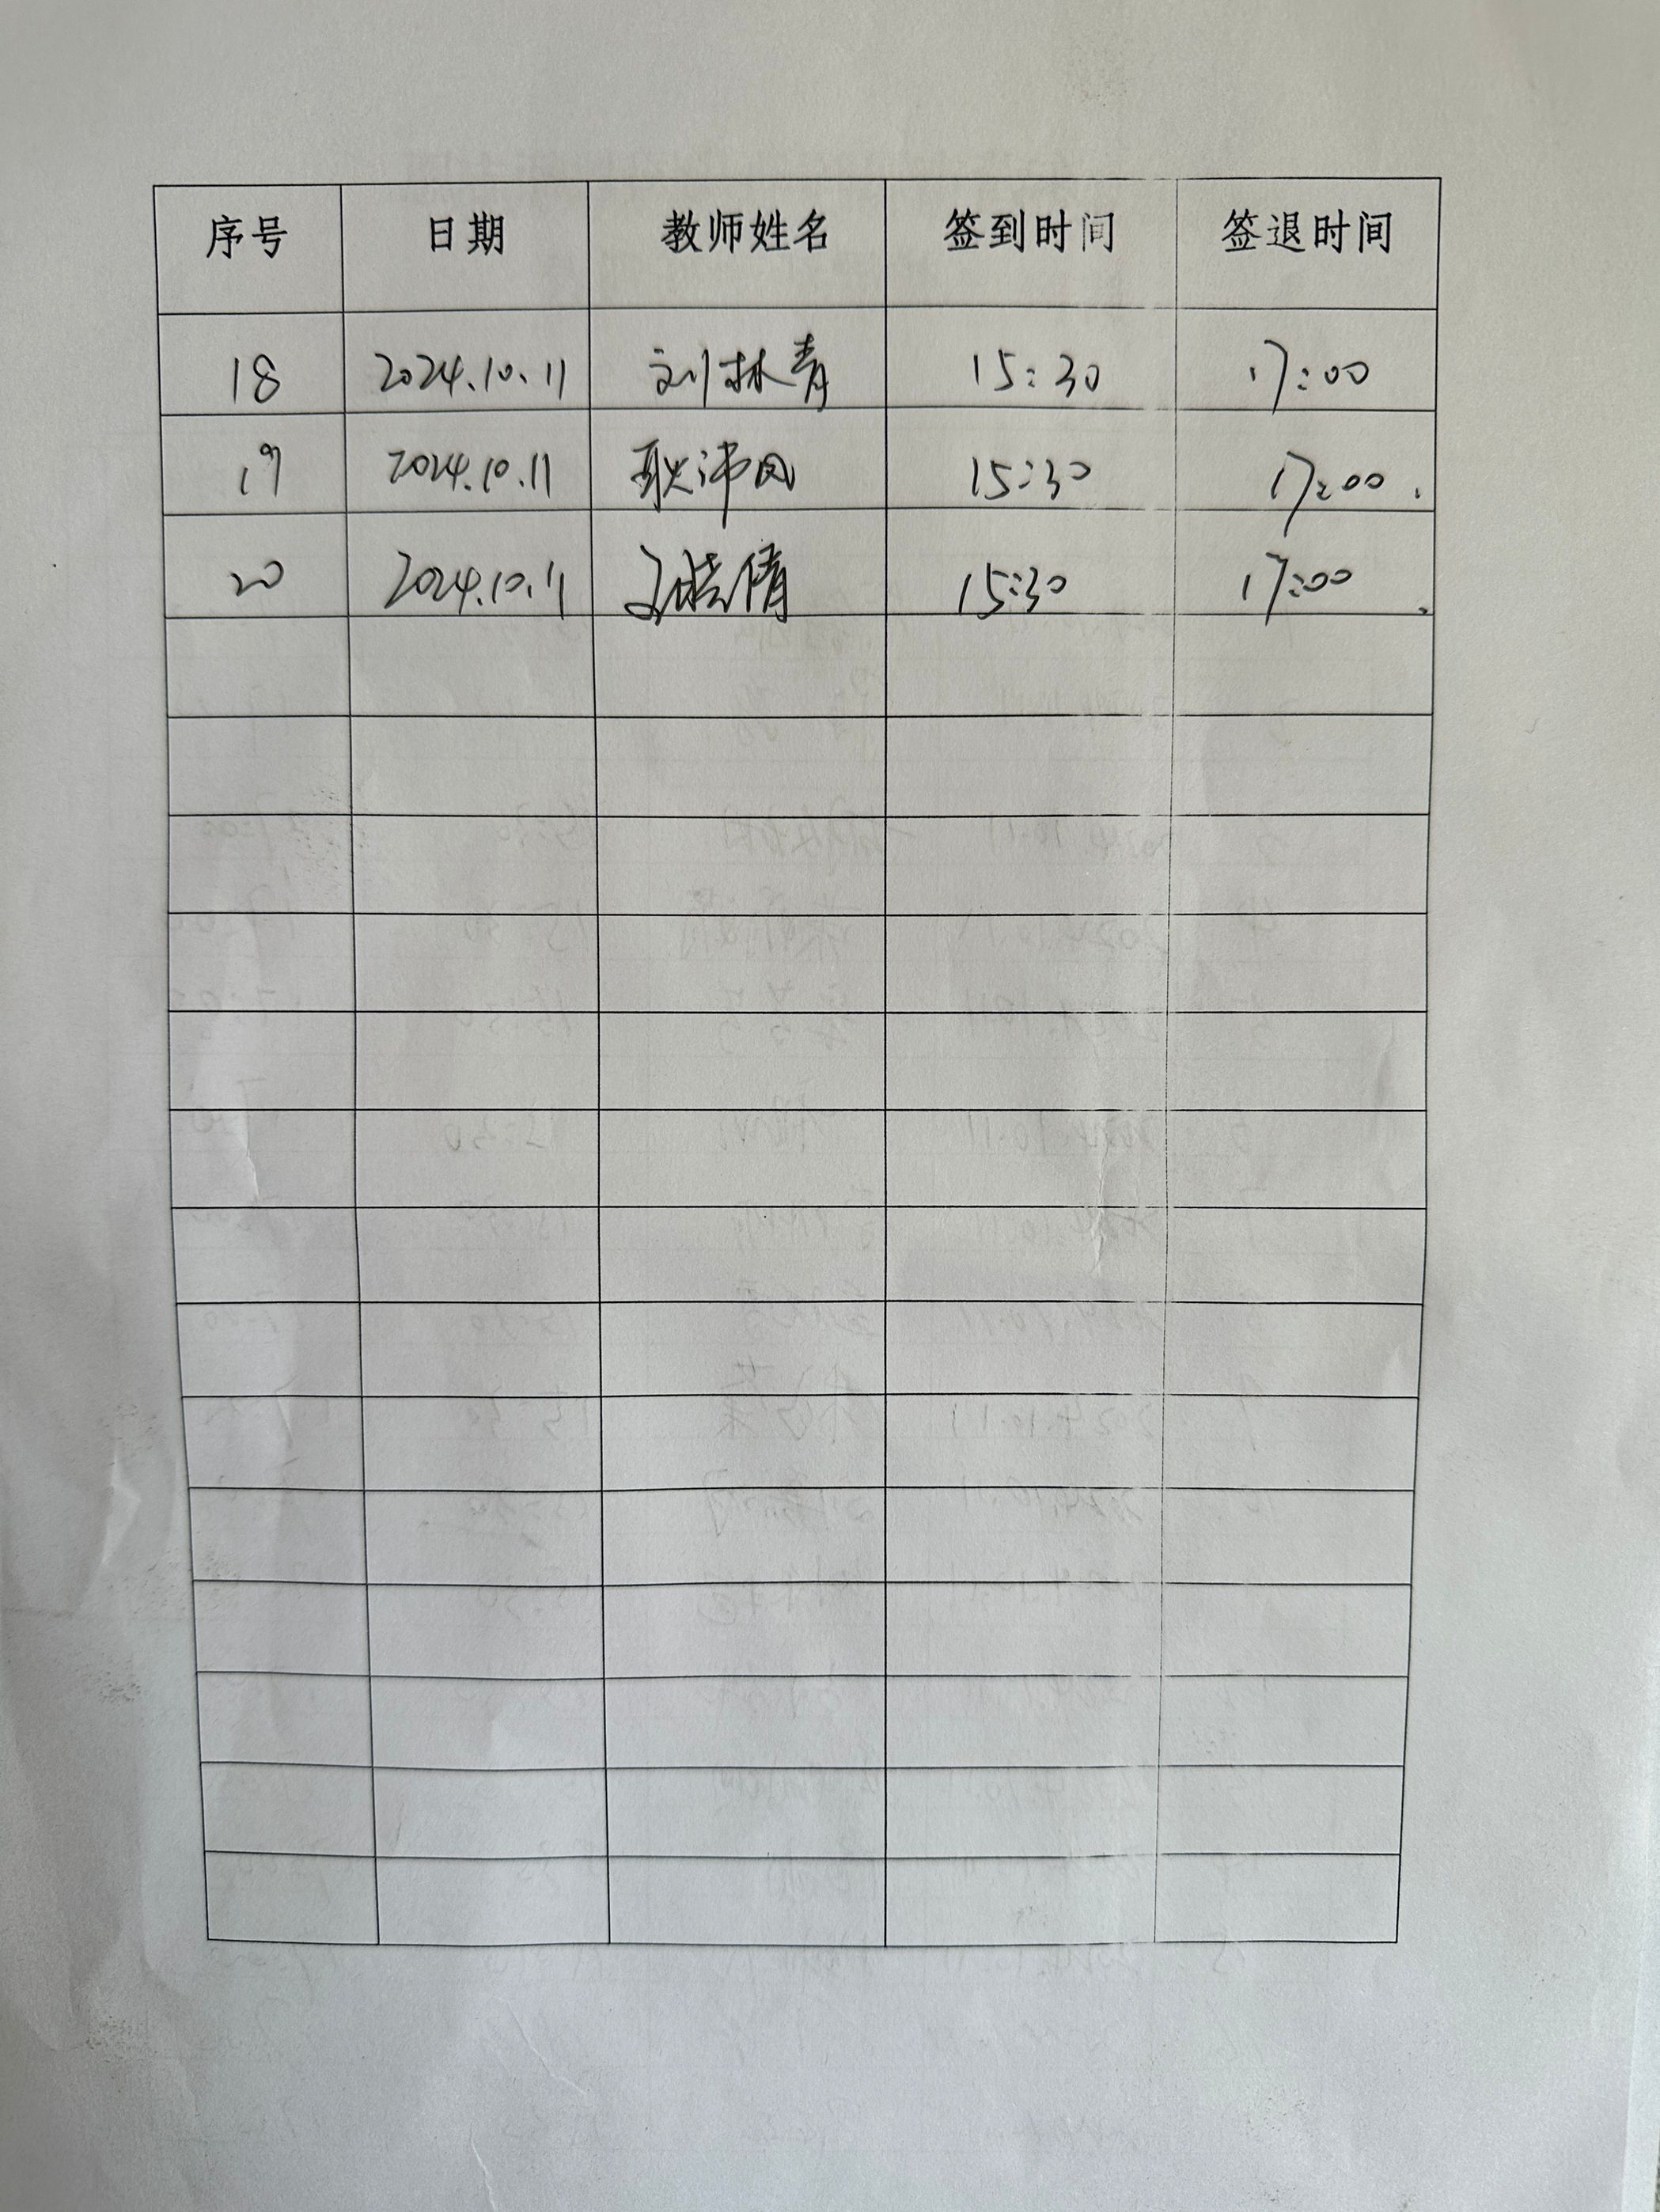 序号 日期 教师姓名 签到时间 签退时间
18 2024.10.11 刘林青 15:30 17:00
19 2024.10.11 耿沛凤 15:30 17:00.
20 2024.10.11 15:30 17:00.